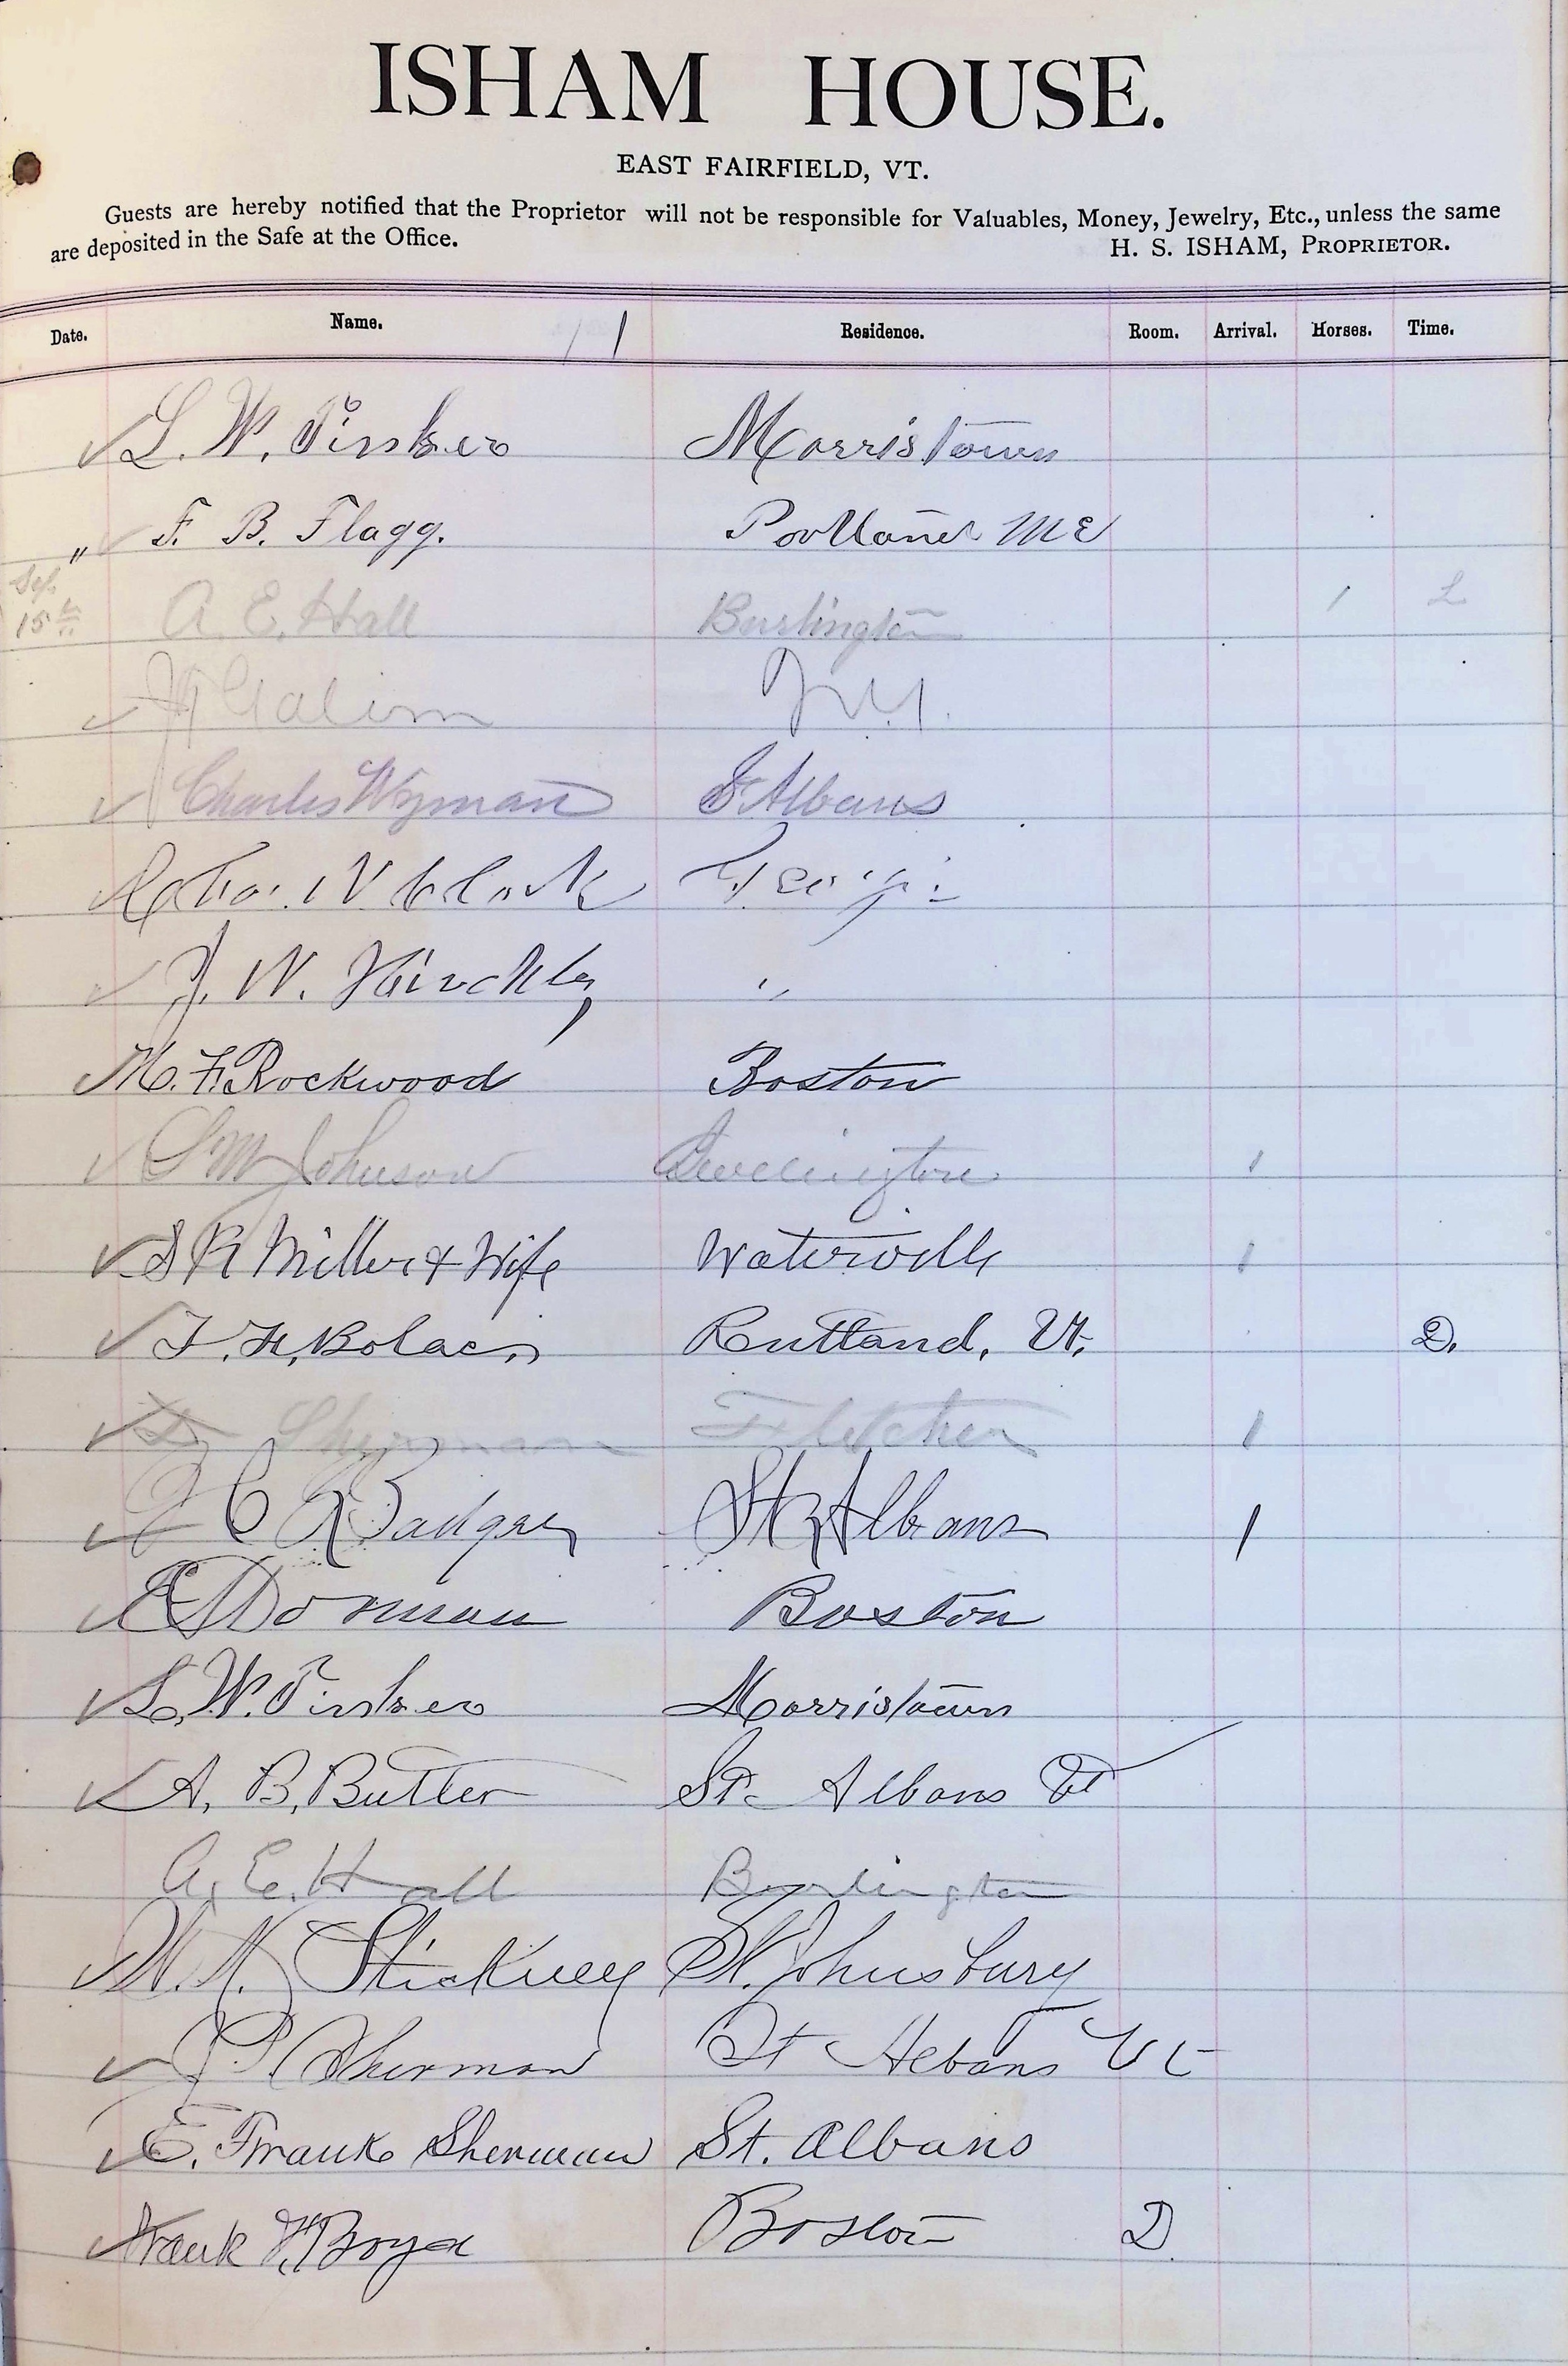 ISHAM HOUSE.
EAST FAIRFIELD, VT.
Guests are hereby notified that the Proprietor will not be responsible for Valuables, Money, Jewelry, Etc., unless the same
are deposited in the Safe at the Office. H. S. ISHAM, PROPRIETOR.
Date. Name. Residence. Room. Arrival. Horses. Time.
L. W. Morristown
" F. B. Flagg. Portland ME
Sep. 15th A. E. Hall Burlington 1 L
N.Y.
Charles Wyman St Albans
N Clark
J. W. Hinckley "
M. F. Rockwood Boston
S M Johnson Burlington 1
S R Miller & Wife Waterville 1
Ruttand, Vt. D.
Sherman Fletcher 1
C Badger St Albans 1
Dorman Boston
L. W. Morristown
A. B. Butler St. Albans Vt
A. E. Hall Burlington
Stickney St. Johnsbury
Sherman St Albans Vt
E. Frank Sherman St. Albans
Frank Boston D